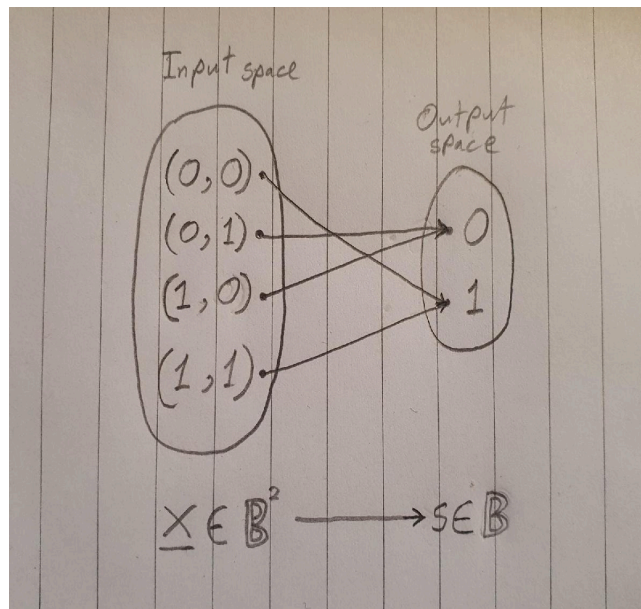 Input space
Output
space
(0,0)
(0,1)
(1,0)
(1,1)
0
1
X ∈ 𝔹² ⟶ s ∈ 𝔹